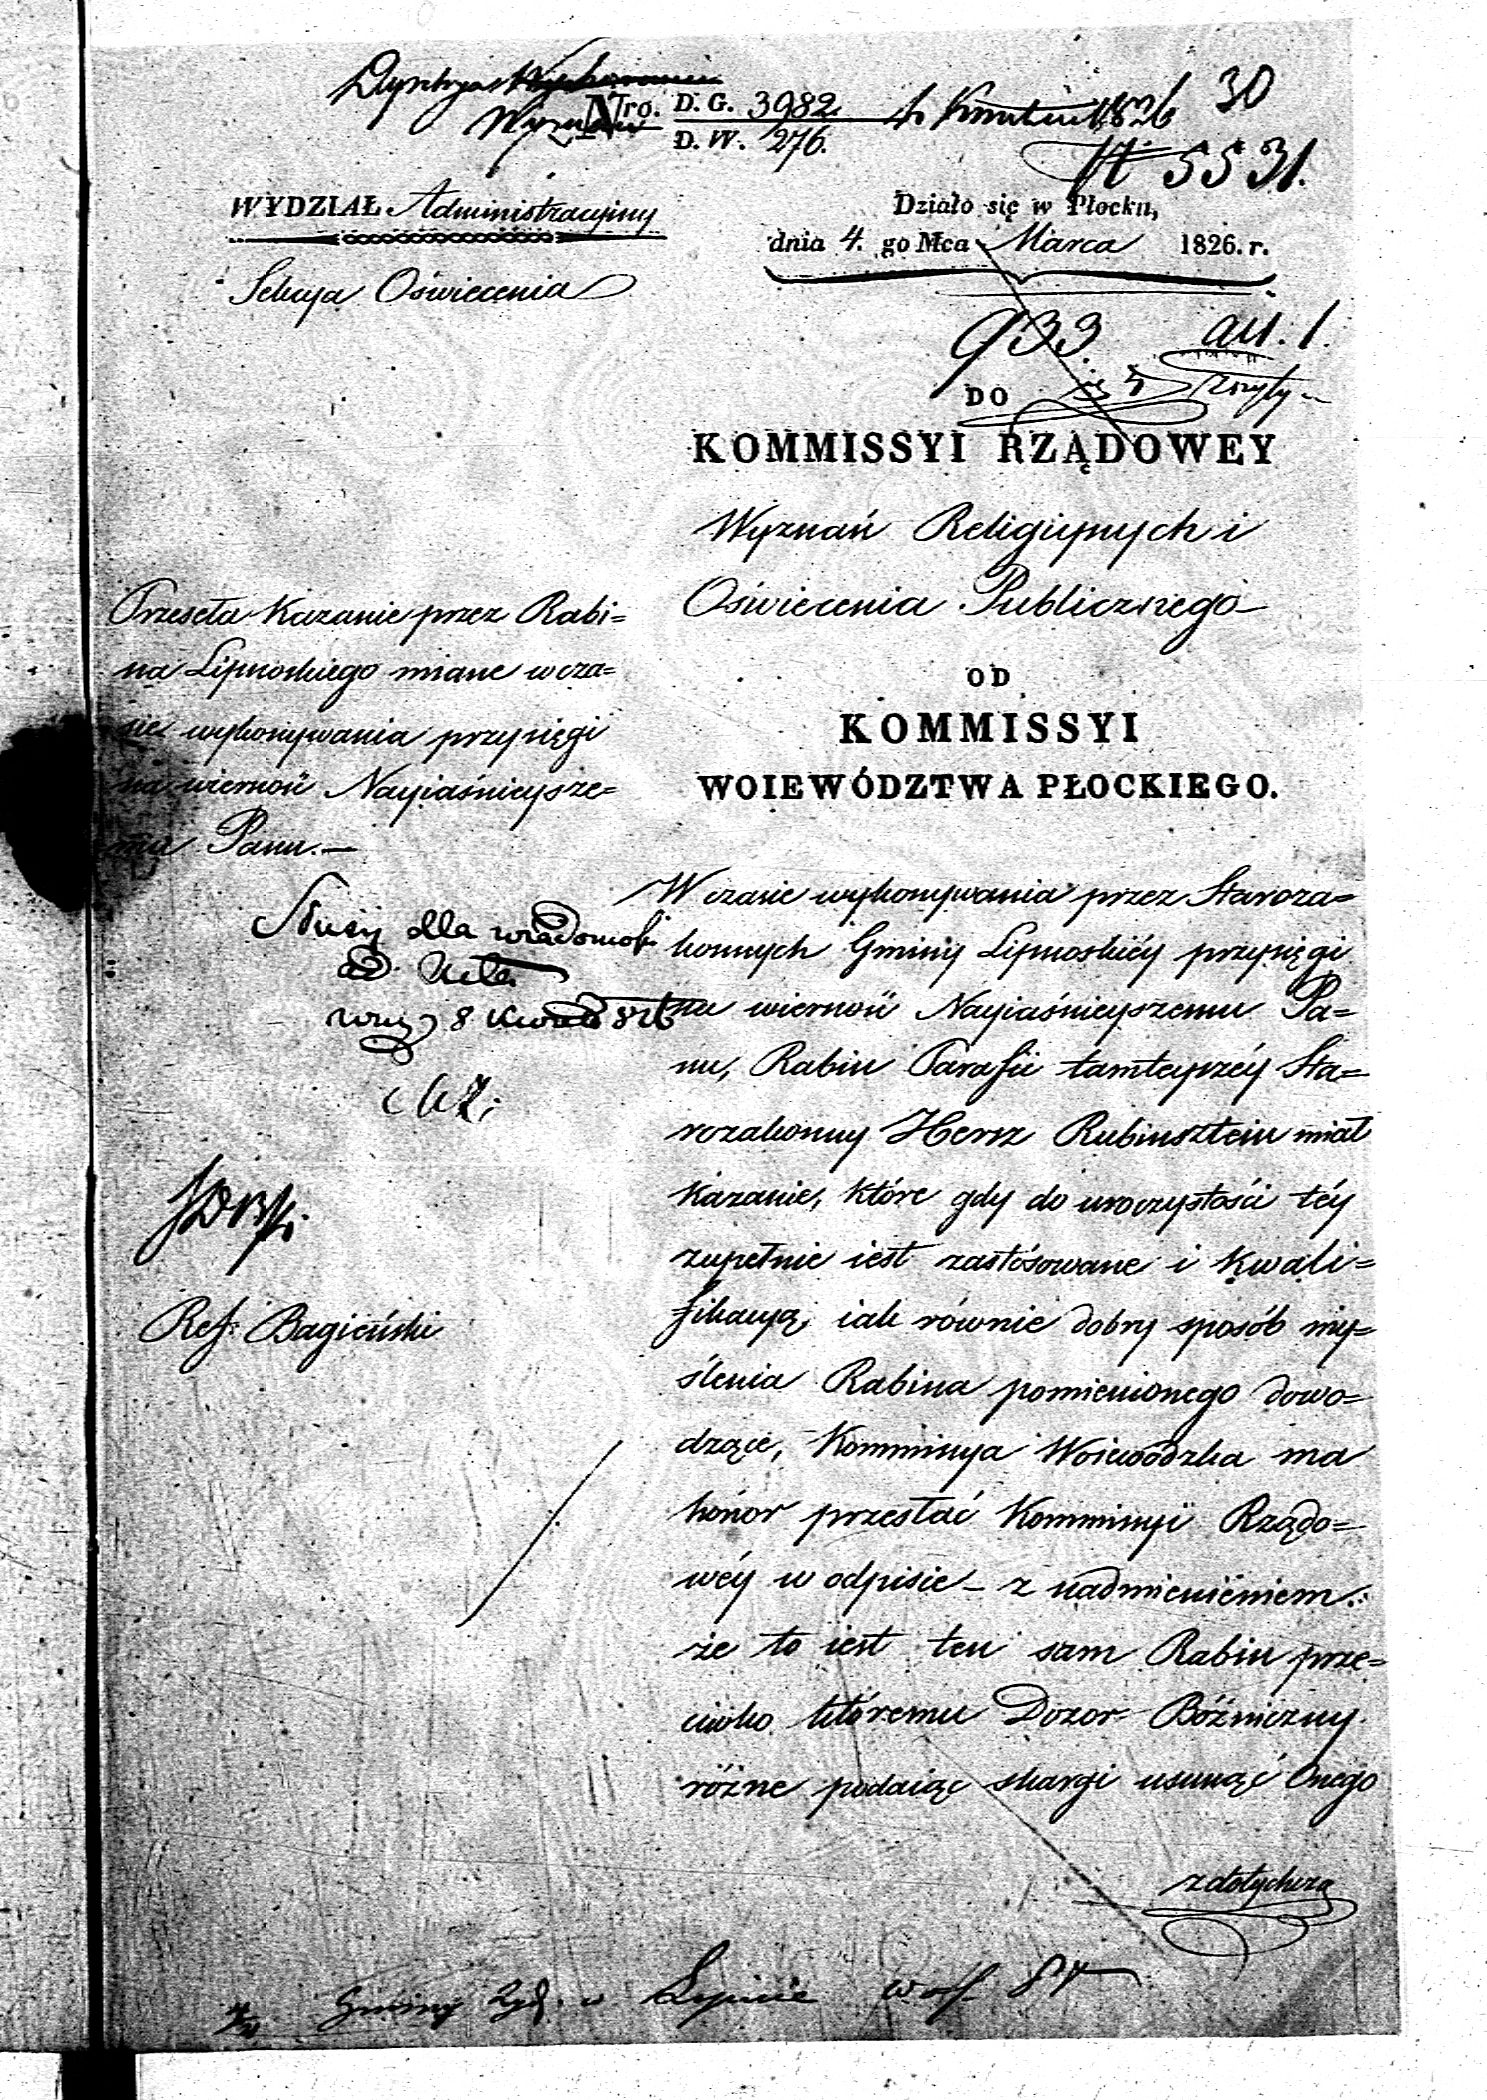 Nro. D. G. 3982.
D. W. 276.
1826
30
5531.
WYDZIAŁ Administracyiny
Sekcya Oświecenia
Działo się w Płocku,
dnia 4. go Mca Marca 1826. r.
933.
DO
KOMMISSYI RZĄDOWEY
Wyznań Religiynych i
Oświecenia Publicznego
OD
KOMMISSYI
WOIEWÓDZTWA PŁOCKIEGO.
Przeseła Kazanie przez Rabi=
na Lipnoskiego miane wcza=
sie wykonywania przysięgi
na wierność Nayiaśnieysze=
mu Panu.—
Służy dla wiadomości
8 826
Ref: Bagieński
W czasie wykonywania przez Staroza=
konnych Gminy Lipnoskiéy przysięgi
na wierność Nayiaśnieyszemu Pa=
nu, Rabin Parafii tamteyszéy Sta=
rozakonny Hersz Rubinsztein miał
Kazanie, które gdy do uroczystości téy
zupełnie iest zastósowane i kwali=
fikacyą, iak równie dobry sposób my=
ślenia Rabina pomienionego dowo=
dzące, Kommissya Woiewódzka ma
honor przesłać Kommissyi Rządo=
wéy w odpisie – z nadmienieniem:
że to iest ten sam Rabin prze=
ciwko któremu Dozor Bóżniczny
różne podaiąc skargi usunąć Onego
z dotychcza
Gminy Żyd. w Lipnie w of 84